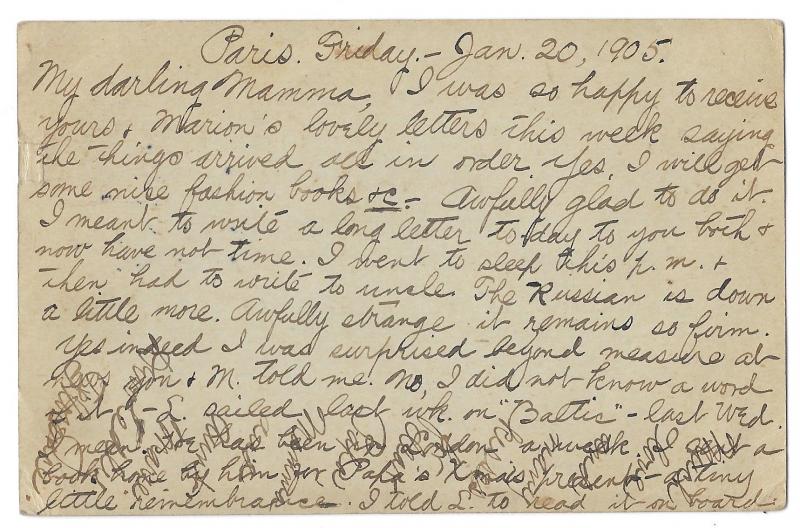 Paris. Friday. - Jan. 20, 1905.
My darling Mamma, I was so happy to receive
yours & Marion's lovely letters this week saying
the things arrived all in order. Yes, I will get
some nice fashion books &c - Awfully glad to do it.
I meant to write a long letter to-day to you both &
now have not time. I went to sleep this p.m. &
then had to write to uncle. The Russian is down
a little more. Awfully strange it remains so firm.
Yes indeed I was surprised beyond measure at
news you & M. told me. No, I did not know a word
of it. - L. sailed last wk. on "Baltic" - last Wed.
I mean. He has been in London a week. I sent a
book home by him for Papa's Xmas present - a tiny
little remembrance. I told L. to read it on board